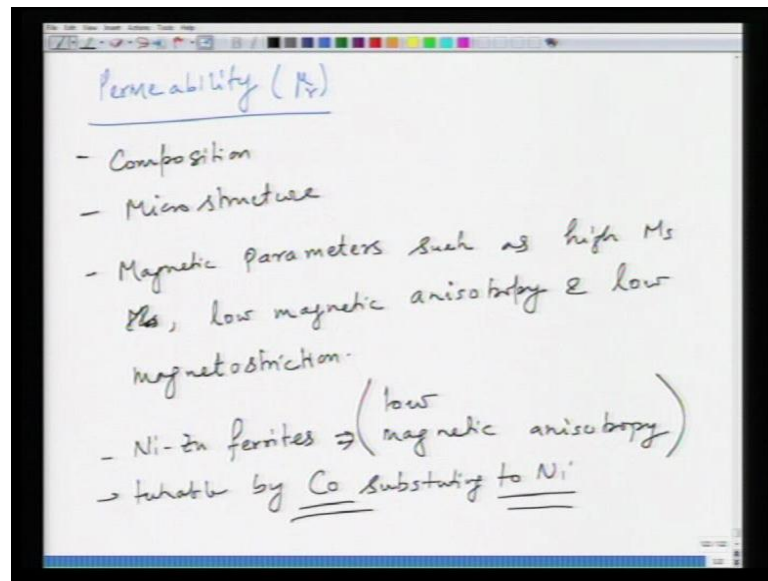 Permeability (μr)
- Composition
- Microstructure
- Magnetic parameters such as high Ms
, low magnetic anisotropy & low
magnetostriction.
- Ni-Zn ferrites ⇒ (low
magnetic anisotropy)
→ tunable by Co substuting to Ni